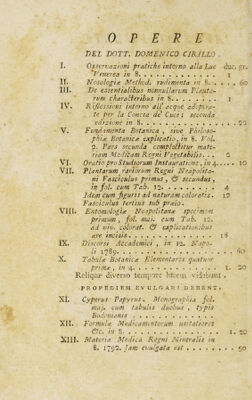 OPERE
DEL DOTT. DOMENICO CIRILLO.
I. Osservazioni pratiche intorno alla Lue duc. gr.
Venerea in 8. . . . . . . . . . . . . 1
II. Nosologiæ Method. rudimenta in 8. . . . . 60
III. De essentialibus nonnullarum Planta-
rum characteribus in 8. . . . . . . . . 1
IV. Riflessioni intorno all' acque adopra-
te per la Concia de' Cuoi seconda
edizione in 8. . . . . . . . . . . . . . 20
V. Fundamenta Botanica, sive Philoso-
phiæ Botanicæ explicatio, in 8. Vol.
2. Pars secunda complectitur mate-
riam Medicam Regni Vegetabilis. . . 2
VI. Oratio pro Studiorum Instauratione, in 4. . . . 10
VII. Plantarum rariorum Regni Neapolita-
ni Fasciculus primus, & secundus,
in fol. cum Tab. 12. . . . . . . . . . . 4
Idem cum figuris ad naturam coloratis. 12
Fasciculus tertius sub prælo.
VIII. Entomologiæ Neapolitanæ specimen
primum, fol. maj. cum Tab. 12.
ad viv. colorat. & explicationibus
ære incisis. . . . . . . . . . . . . . 18
IX. Discorsi Accademici, in 12. Napo-
li 1789. . . . . . . . . . . . . . . . . 60
X. Tabulæ Botanicæ Elementares quatuor
primæ, in 4. . . . . . . . . . . . . 1. 20
Reliquæ diverso tempore lucem videbunt.
PROPEDIEM EVULGARI DEBENT.
XI. Cyperus Papyrus. Monographia fol.
maj. cum tabulis duobus, typis
Bodonianis . . . . . . . . . . . . . .
XII. Formulæ Medicamentorum usitatiores
&c. in 8. . . . . . . . . . . . . . 1. 20
XIII. Materia Medica Regni Mineralis in
8. 1792. Jam evulgata est . . . . . . . 50